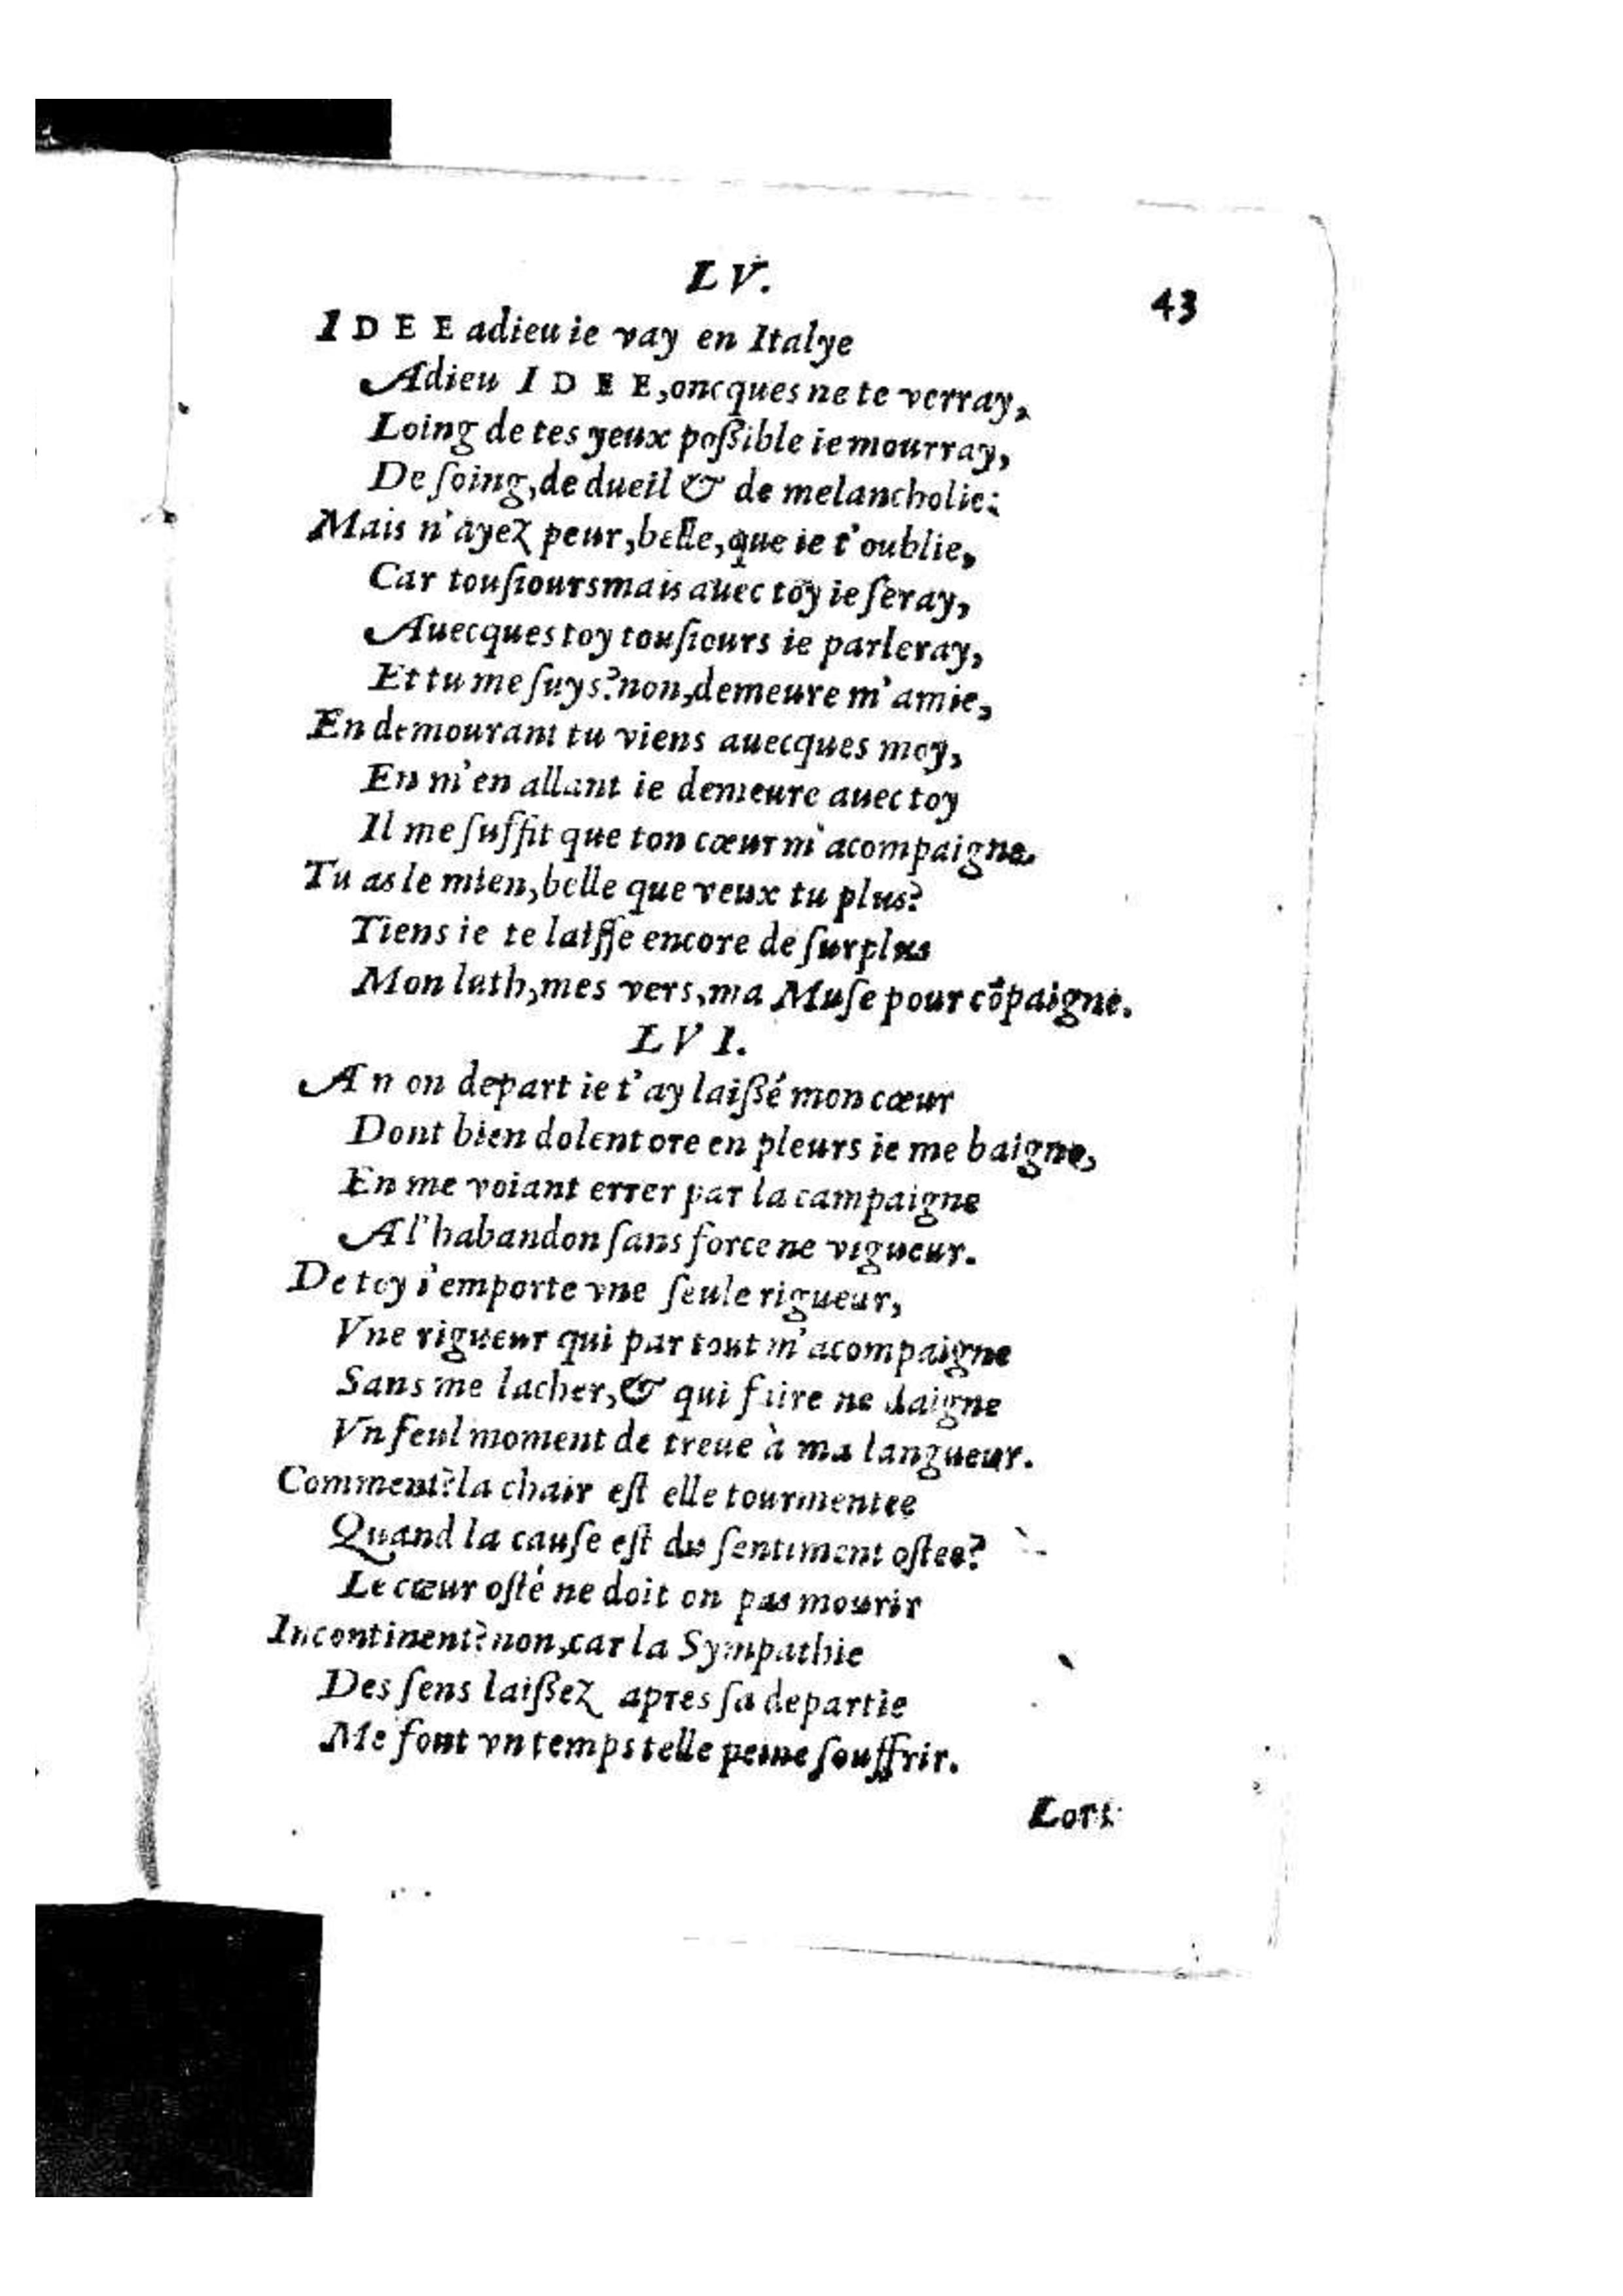 LV.
43
IDEE adieu ie vay en Italye
Adieu IDEE, oncques ne te verray,
Loing de tes yeux poßible ie mourray,
De ſoing, de dueil & de melancholie:
Mais n'ayez peur, belle, que ie t'oublie,
Car touſioursmais auec toy ie ſeray,
Auecques toy touſiours ie parleray,
Et tu me ſuys? non, demeure m'amie,
En demourant tu viens auecques moy,
En m'en allant ie demeure auec toy
Il me ſuffit que ton cœur m'acompaigne.
Tu as le mien, belle que veux tu plus?
Tiens ie te laiſſe encore de ſurplus
Mon luth, mes vers, ma Muſe pour cõpaigne.
LVI.
A non depart ie t'ay laißé mon cœur
Dont bien dolent ore en pleurs ie me baigne,
En me voiant errer par la campaigne
A l'habandon ſans force ne vigueur.
De toy i'emporte vne ſeule rigueur,
Vne rigueur qui par tout m'acompaigne
Sans me lacher, & qui faire ne daigne
Vn ſeul moment de treue à ma langueur.
Comment? la chair eſt elle tourmentee
Quand la cauſe eſt du ſentiment oſtee?
Le cœur oſté ne doit on pas mourir
Incontinent? non, car la Sympathie
Des ſens laißez apres ſa departie
Me font vn temps telle peine ſouffrir.
Lors